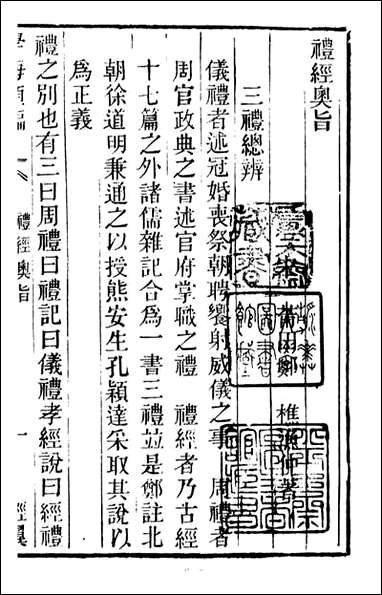 禮經奧旨
莆田鄭　樵漁仲著
三禮總辨
儀禮者述冠婚喪祭朝聘饗射威儀之事　周禮者
周官政典之書述官府掌職之禮　禮經者乃古經
十七篇之外諸儒雜記合為一書三禮並是鄭註北
朝徐道明兼通之以授熊安生孔穎達采取其說以
為正義
禮之別也有三曰周禮曰禮記曰儀禮孝經說曰經禮
學海類編　禮經奧旨　一　經翼